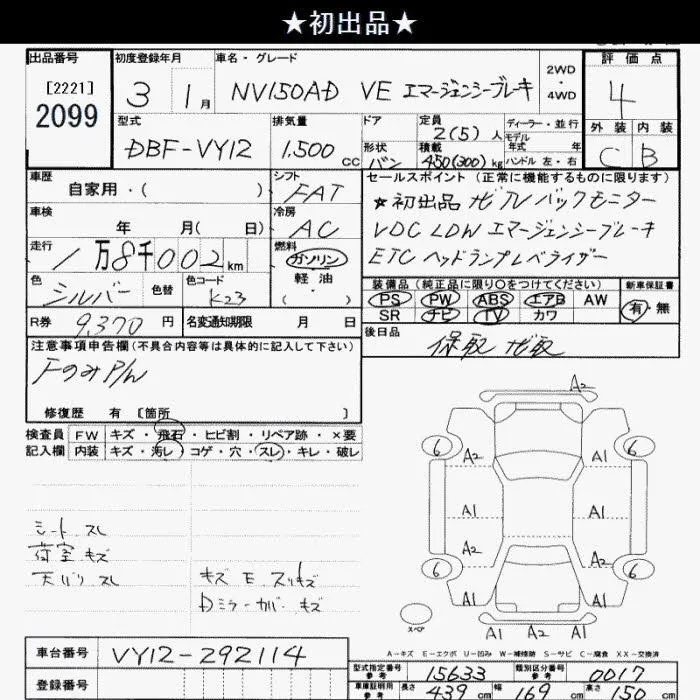 ★初出品★
出品番号
[2221]
2099
初度登録年月
3 1月
車名・グレード
NV150AD VE エマージェンシーブレーキ
2WD
・
4WD
評価点
4
外装 内装
C B
型式
DBF-VY12
排気量
1,500 cc
ドア
形状
バン
定員
2(5)人
積載
450(300)kg
ディーラー・並行
モデル
年式 年
ハンドル 左・右
車歴
自家用・( )
シフト
FAT
車検
年 月( 日)
冷房
AC
走行
1万8千002km
燃料
ガソリン
軽油
・
( )
色
シルバー
色替
色コード
K23
R券
9,370円
名変通知期限 月 日
セールスポイント(正常に機能するものに限ります)
★初出品 ナビ TV バックモニター
VDC LDW エマージェンシーブレーキ
ETC ヘッドランプレベライザー
装備品(純正品に限り○をつけてください)
PS PW ABS エアB AW
SR ナビ TV カワ
新車保証書
有・無
後日品
保取 ナビ取
注意事項申告欄(不具合内容等は具体的に記入して下さい)
FのみP/W
修復歴 有 [箇所 ]
検査員
記入欄
FW キズ・飛石・ヒビ割・リペア跡・×要
内装 キズ・汚レ・コゲ・穴・スレ・キレ・破レ
シート スレ
荷室 キズ
天バリ スレ
キズ E スリキズ
Dミラーカバー キズ
A2
6 A2 A1 6
A1 A1
A2 A1
6 6
A1 A1
A1 A2 A1
スペア
A-キズ E-エクボ U-凹み W-補修跡 S-サビ C-腐食 XX-交換済
車台番号
VY12-292114
登録番号
型式指定番号
参考
15633
類別区分番号
参考
0017
車庫証明用
参考
長さ 439cm 幅 169cm 高さ 150cm